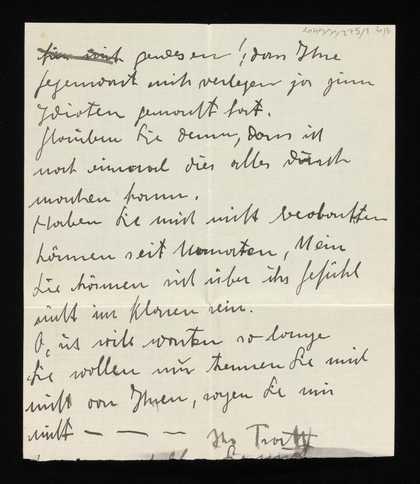 gewesen!, dass Ihre
Gegenwart mich verlegen ja zum
Idioten gemacht hat.
Glauben Sie denn, dass ich
noch einmal dies alles durch
machen kann.
Haben Sie mich nicht beobachten
können seit Monaten, Nein
Sie können sich über ihr Gefühl
nicht im Klaren sein.
O, ich will warten so lange
Sie wollen nur trennen Sie mich
nicht von Ihnen, sagen Sie mir
nicht — — — Ihr